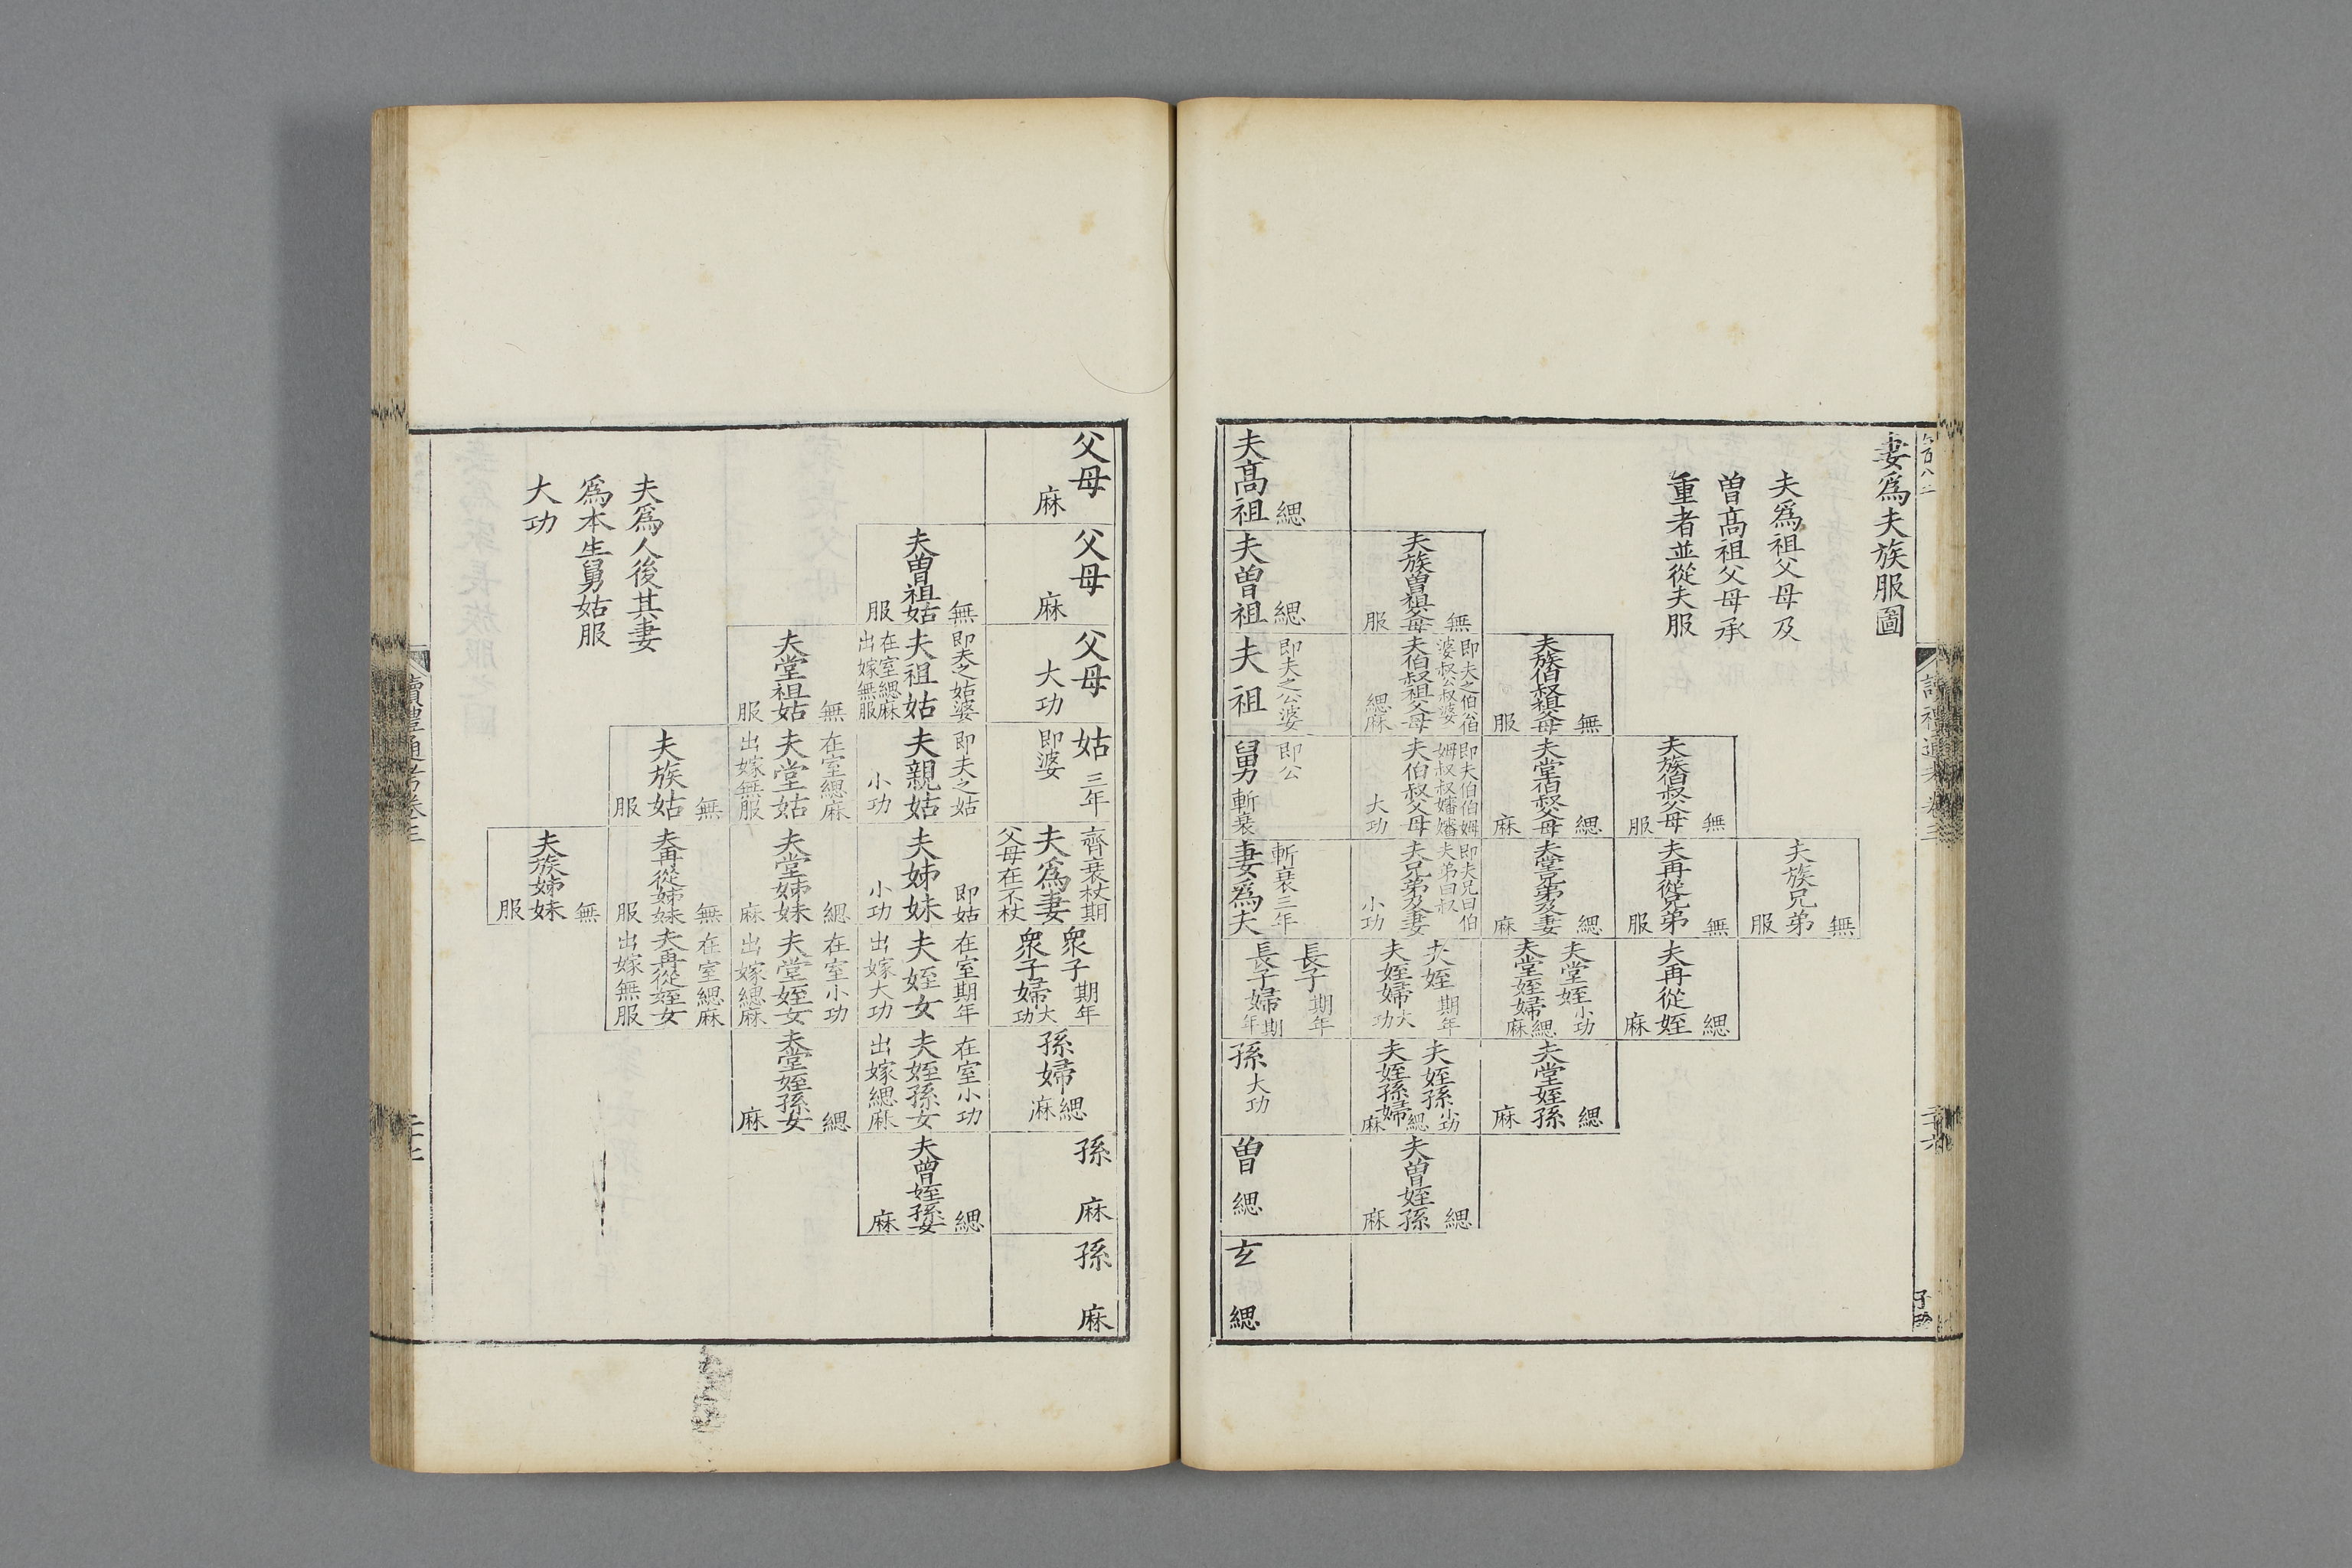 妻爲夫族服圖
夫爲祖父母及
曾髙祖父母承
重者並從夫服
夫族兄弟 無服
夫族伯叔父母 無服
夫再從兄弟 無服
夫再從姪 緦麻
夫族伯叔祖父母 無服
夫堂伯叔父母 緦麻
夫堂兄弟及妻 緦麻
夫堂姪 小功
夫堂姪婦 緦麻
夫堂姪孫 緦麻
夫族曾祖父母 無服
即夫之伯公伯婆叔公叔婆
夫伯叔祖父母 緦麻
即夫伯伯姆姆叔叔嬸嬸
夫伯叔父母 大功
即夫兄曰伯夫弟曰叔
夫兄弟及妻 小功
夫姪 期年
夫姪婦 大功
夫姪孫 小功
夫姪孫婦 緦麻
夫曾姪孫 緦麻
夫髙祖 緦
夫曾祖 緦
夫祖 即夫之公婆
舅 即公 斬衰
斬衰三年
妻爲夫
長子 期年
長子婦 期年
孫 大功
曾 緦
玄 緦
父母 麻
父母 麻
父母 大功
姑 三年 即婆
齊衰杖期
夫爲妻
父母在不杖
衆子 期年
衆子婦 大功
孫婦 緦麻
孫 麻
孫 麻
夫曾祖姑 無服
即夫之姑婆
夫祖姑
在室緦麻
出嫁無服
即夫之姑
夫親姑 小功
即姑
夫姊妹 小功
在室期年
夫姪女
出嫁大功
在室小功
夫姪孫女
出嫁緦麻
夫曾姪孫女 緦麻
夫堂祖姑 無服
在室緦麻
夫堂姑
出嫁無服
夫堂姊妹 緦麻
在室小功
夫堂姪女
出嫁緦麻
夫堂姪孫女 緦麻
夫族姑 無服
夫再從姊妹 無服
在室緦麻
夫再從姪女
出嫁無服
夫族姊妹 無服
夫爲人後其妻
爲本生舅姑服
大功
讀禮通考卷三